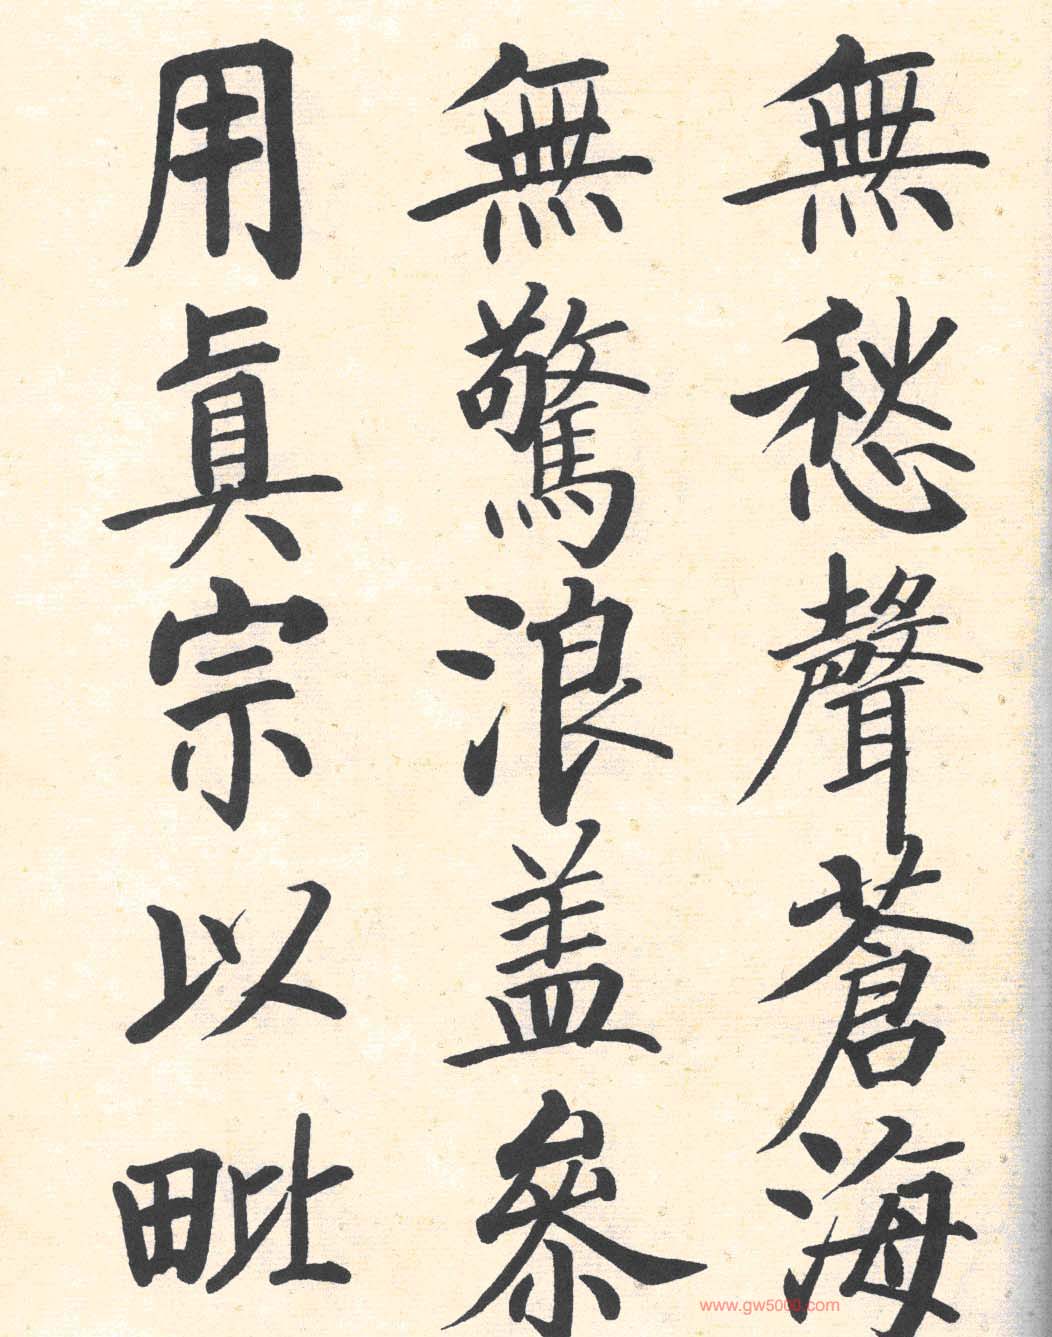 無愁聲蒼海
無驚浪盖參
用眞宗以毗
www.gw5000.com